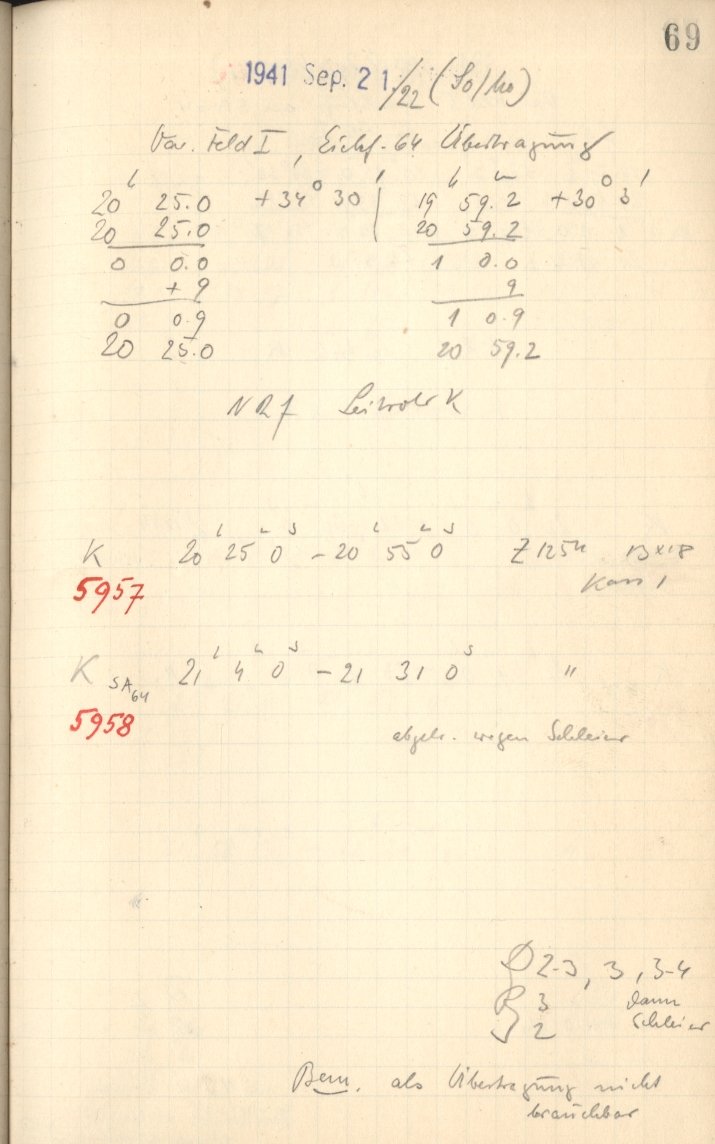 69
1941 Sep. 21./22 (So/Mo)
Var. Feld I, Eichf. 64 Übertragung
20ʰ 25.0 +34° 30' | 19ʰ 59.2ᵐ +30° 3'
20 25.0 20 59.2
0 0.0 1 0.0
+9 9
0 0.9 1 0.9
20 25.0 20 59.2
NRf Leitrohr K
K 20ʰ 25ᵐ 0ˢ – 20ʰ 55ᵐ 0ˢ Z 1254 13x18
Kass 1
5957
K SA64 21ʰ 4ᵐ 0ˢ – 21 31 0ˢ "
5958
abgebr. wegen Schleier
D 2-3, 3, 3-4
3 dann
2 Schleier
Bem. als Übertragung nicht
brauchbar